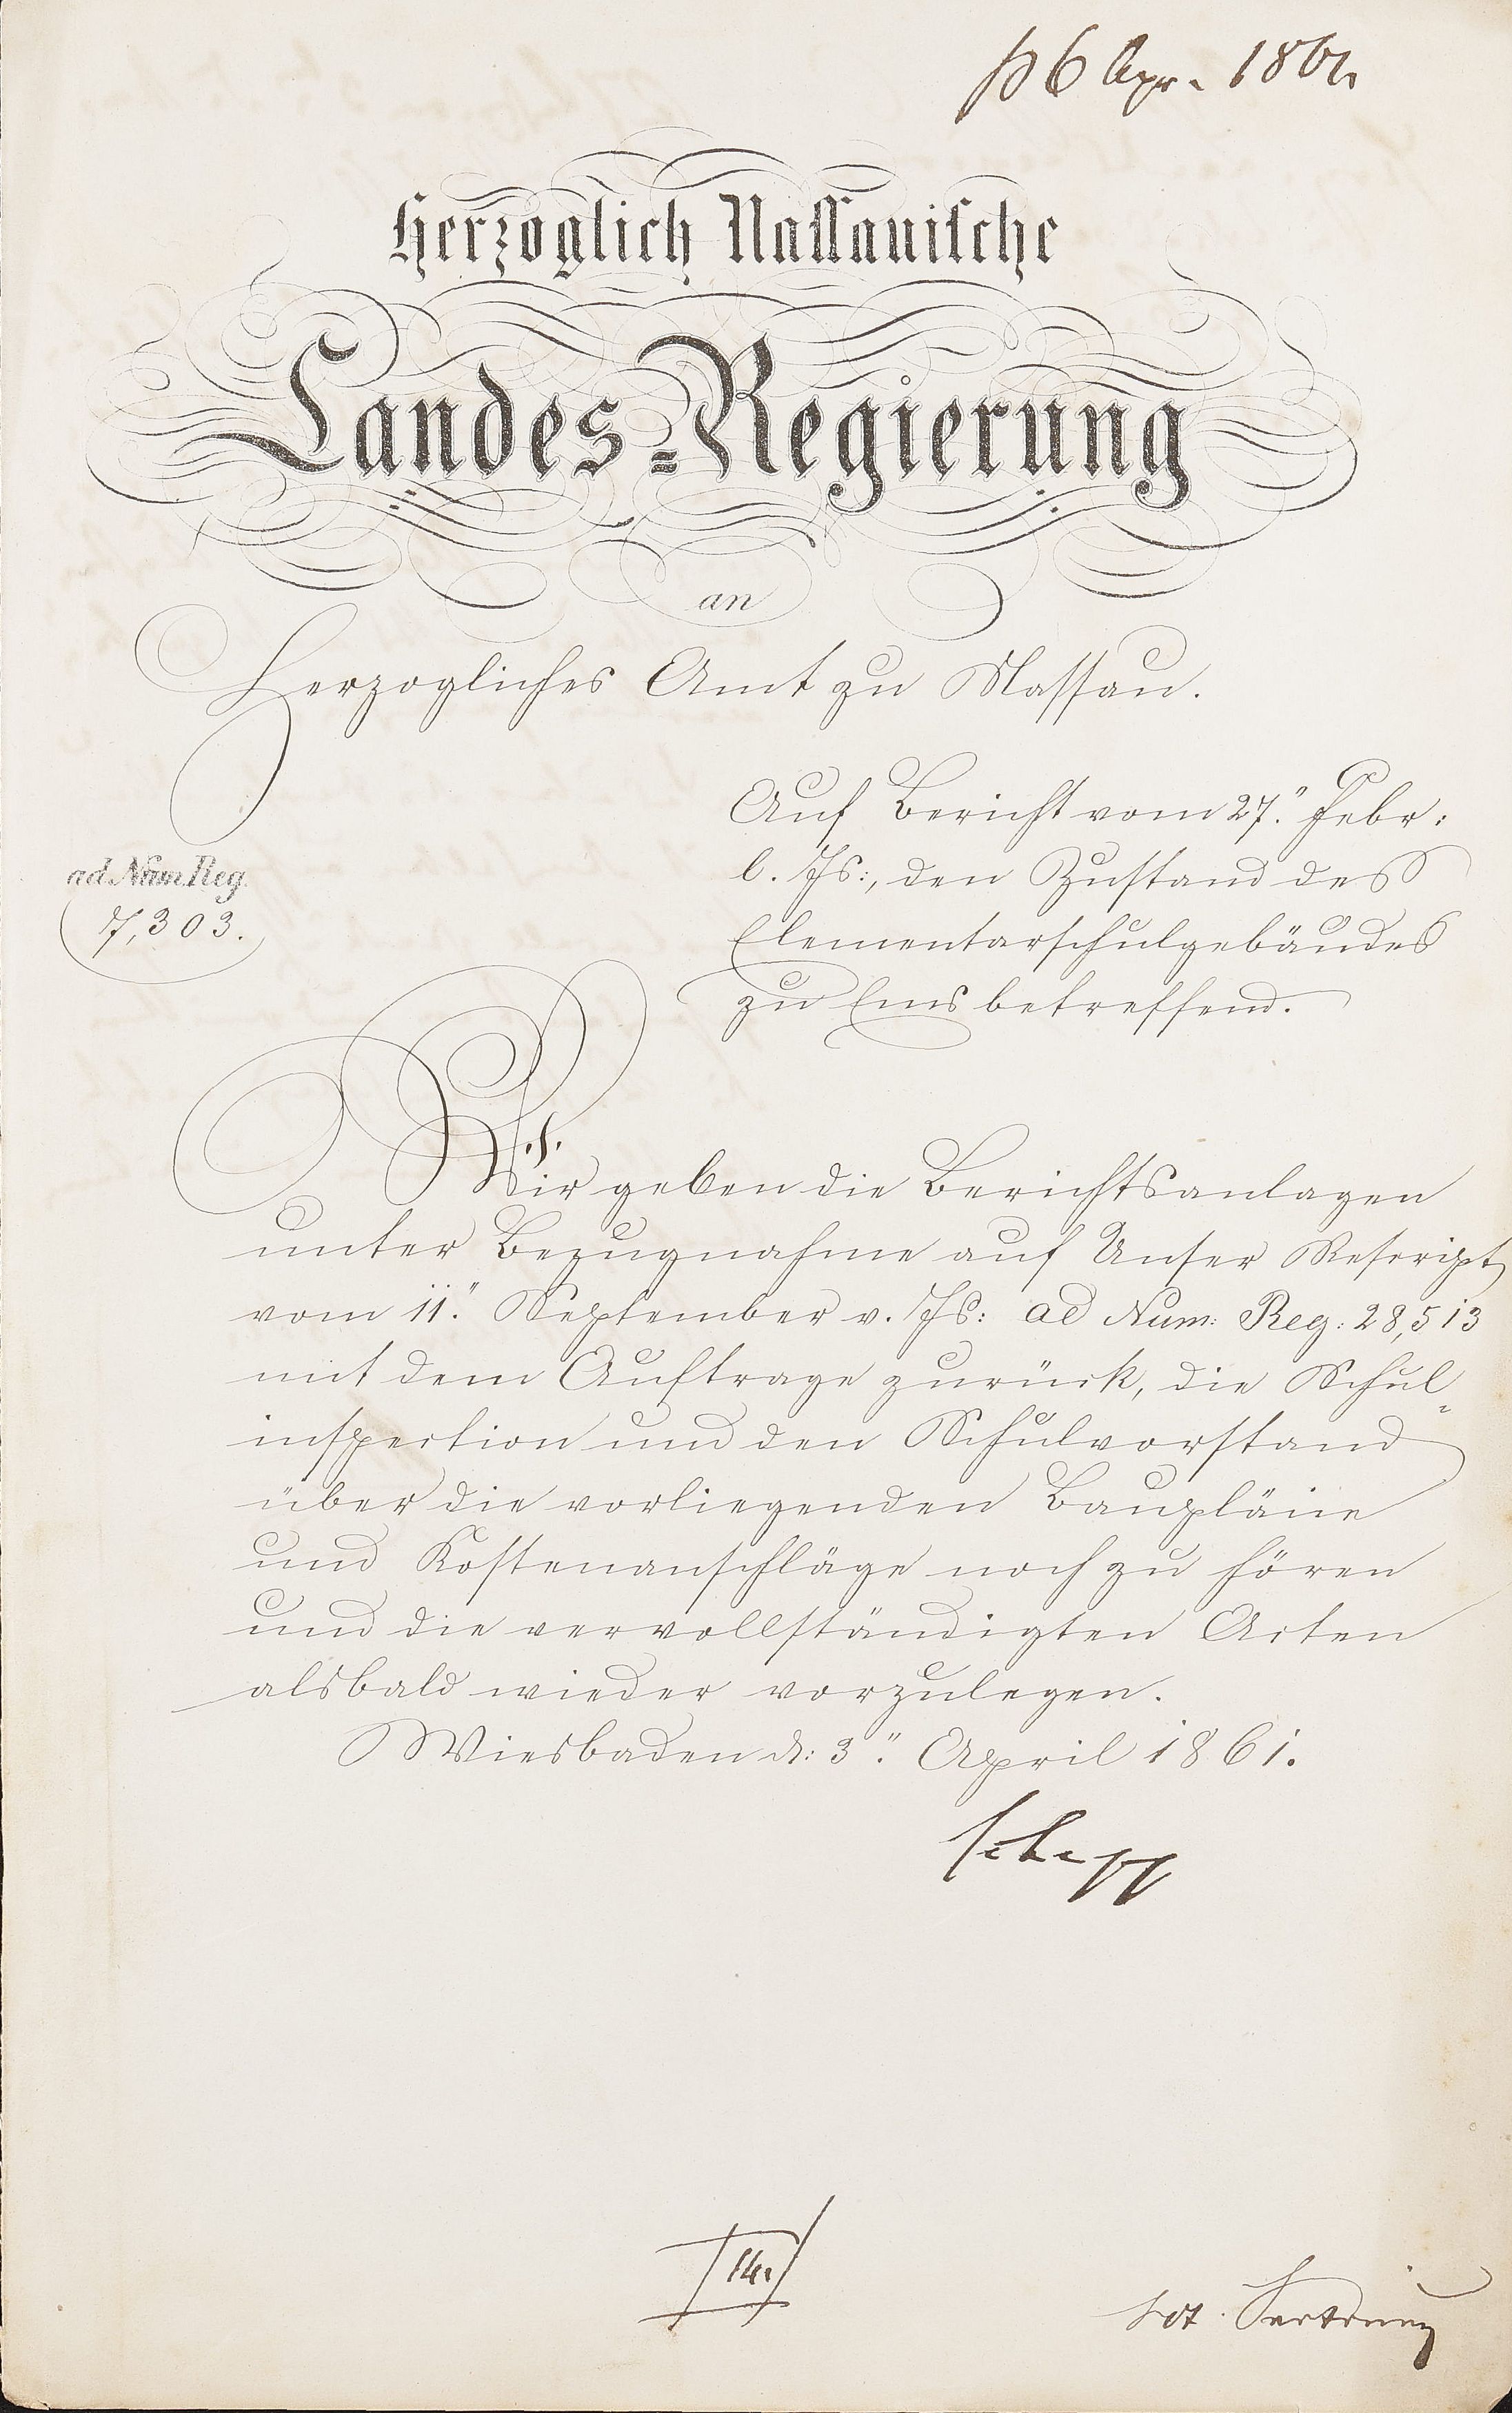 6 Apr. 1861
Herzoglich Nassauische
Landes-Regierung
an
Herzogliches Amt zu Nassau.
Auf Bericht vom 27." Febr:
l. Js:, den Zustand des
Elementarschulgebäudes
zu Ems betreffend.
ad Num. Reg.
7,303.
Wir geben die Berichtsanlagen
unter Bezugnahme auf Unser Rescript
vom 11." September v. Js: ad Num: Reg: 28,513
mit dem Auftrage zurück, die Schul-
inspection und den Schulvorstand
über die vorliegenden Baupläne
und Kostenanschläge noch zu hören
und die vervollständigten Acten
alsbald wieder vorzulegen.
Wiesbaden d: 3." April 1861.
Schepp
14.